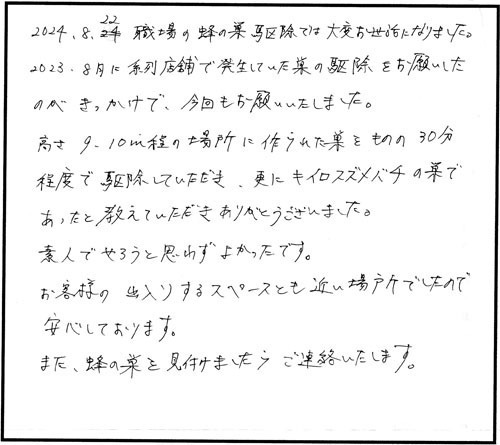 2024.8.22 職場の蜂の巣駆除では大変お世話になりました。
2023.8月に系列店舗で発生していた巣の駆除をお願いした
のがきっかけで、今回もお願いいたしました。
高さ9-10m程の場所に作られた巣をものの30分
程度で駆除していただき、更にキイロスズメバチの巣で
あったと教えていただきありがとうございました。
素人でやろうと思わずよかったです。
お客様の出入りするスペースとも近い場所でしたので
安心しております。
また、蜂の巣を見付けましたらご連絡いたします。